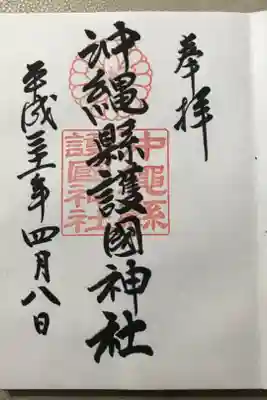 奉拝
沖縄縣護國神社
沖縄縣護國神社
平成三十一年四月八日